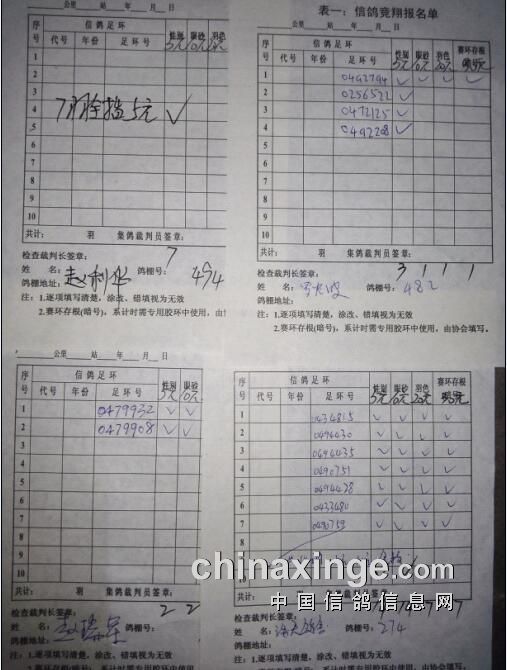 公里 站 年 月 日
序号 信鸽足环 性别 眼砂 羽色
代号 年份 足环号 5元 10元
1
2
3
4
5
6
7
8
9
10
共计: 羽 集鸽裁判员签章:
检查裁判长签章: 7
姓 名: 鸽棚号: 494
鸽棚地址:
注: 1.逐项填写清楚, 涂改、错填视为无效
2.赛环存根(暗号), 系计时需专用胶环中使用, 由
表一: 信鸽竞翔报名单
公里 站 年 月 日
序号 信鸽足环 性别 眼砂 羽色 赛环存根
代号 年份 足环号 5元 10元 20元
1 0492794 ✓ ✓ ✓ ✓
2 0256522 ✓
3 0472125 ✓
4 0492208 ✓
5
6
7
8
9
10
共计: 羽 集鸽裁判员签章:
检查裁判长签章: 3 1 1 1
姓 名: 鸽棚号: 482
鸽棚地址:
注: 1.逐项填写清楚, 涂改、错填视为无效
2.赛环存根(暗号), 系计时需专用胶环中使用, 由协会填写。
公里 站 年 月 日
序号 信鸽足环 性别 眼砂
代号 年份 足环号 5元 10元
1 0479932 ✓ ✓
2 0479908 ✓ ✓
3
4
5
6
7
8
9
10
共计: 羽 集鸽裁判员签章:
检查裁判长签章: 2 2
姓 名: 鸽棚号:
鸽棚地址:
注: 1.逐项填写清楚, 涂改、错填视为无效
2.赛环存根(暗号), 系计时需专用胶环中使用
序号 信鸽足环 性别 眼砂 羽色 赛环存根
代号 年份 足环号 5元 10元 20元
1 0434815 ✓ ✓ ✓ ✓
2 0494430 ✓ ✓ ✓ ✓
3 0494435 ✓ ✓ ✓ ✓
4 0490751 ✓ ✓ ✓ ✓
5 0494428 ✓ ✓ ✓ ✓
6 0433480 ✓ ✓ ✓ ✓
7 0490759 ✓ ✓ ✓ ✓
8
9
10
共计: 羽 集鸽裁判员签章:
检查裁判长签章:
姓 名: 鸽棚号: 274
鸽棚地址:
注: 1.逐项填写清楚, 涂改、错填视为无效
2.赛环存根(暗号), 系计时需专用胶环中使用, 由协会填写。
chinaxinge.com
中国信鸽信息网